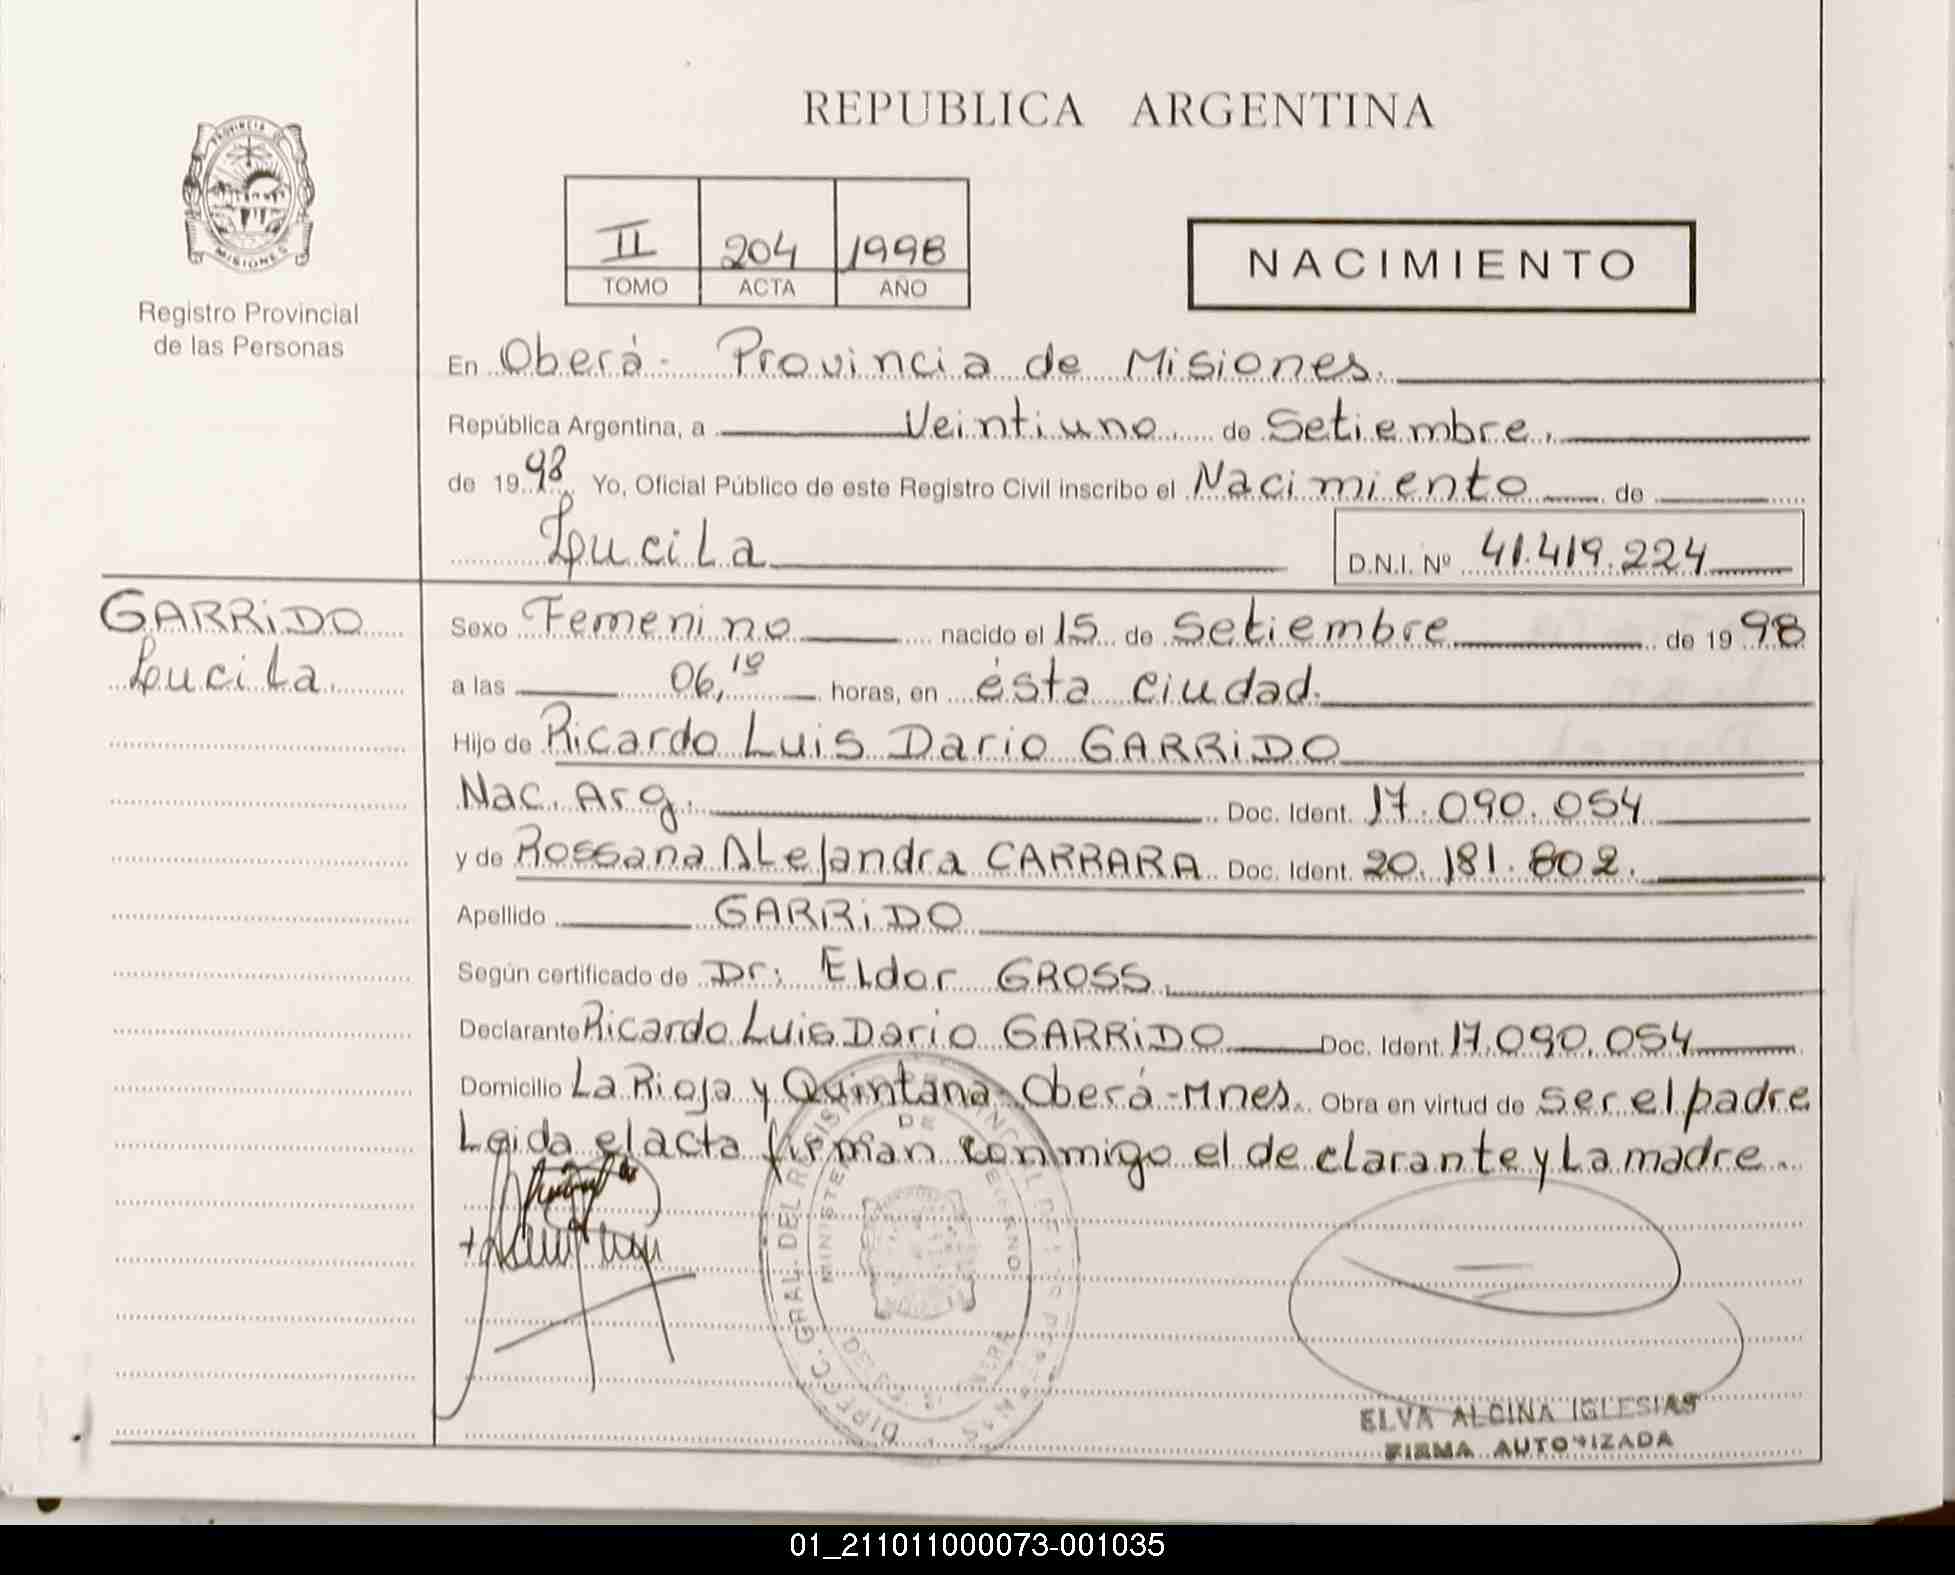 REPUBLICA ARGENTINA
PROVINCIA DE MISIONES
Registro Provincial
de las Personas
II 204 1998
TOMO ACTA AÑO
NACIMIENTO
En Oberá - Provincia de Misiones.
República Argentina, a Veintiuno de Setiembre.
de 1998 Yo, Oficial Público de este Registro Civil inscribo el Nacimiento de
Lucila D.N.I. Nº 41.419.224
GARRiDO
Lucila
Sexo Femenino nacido el 15 de Setiembre de 1998
a las 06,10 horas, en ésta ciudad.
Hijo de Ricardo Luis Dario GARRiDO
Nac. Arg. Doc. Ident. 17.090.054
y de Rossana Alejandra CARRARA Doc. Ident. 20.181.802.
Apellido GARRiDO
Según certificado de Dr: Eldor GROSS.
Declarante Ricardo Luis Dario GARRiDO Doc. Ident. 17.090.054
Domicilio La Rioja y Quintana - Oberá - Mnes. Obra en virtud de ser el padre
Leida el acta firman conmigo el declarante y la madre.
DIRECC. GRAL. DEL REGIST
MINISTE DE
ELVA ALCINA IGLESIAS
FIRMA AUTORIZADA
01_211011000073-001035